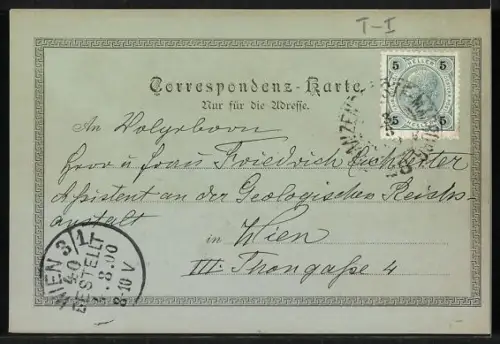 T-I
5 HELLER 5
5 5
Correspondenz-Karte.
Nur für die Adresse.
An Wolgeborn
Herr u frau Friedrich Eichleiter
Assistent an der Geologischen Reichs-
anstalt
in Wien
III. Thongaße 4
WIEN 3/1
40
BESTELLT
.8.00
8-10 V